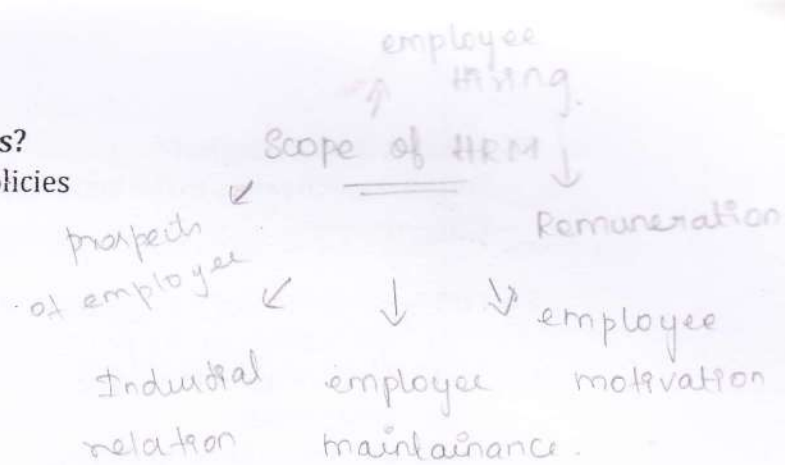 employee
Hiring.
s?
Scope of HRM
olicies
Remuneration
prospects
of employee
employee
motivation
Industrial
relation
employee
maintainance.